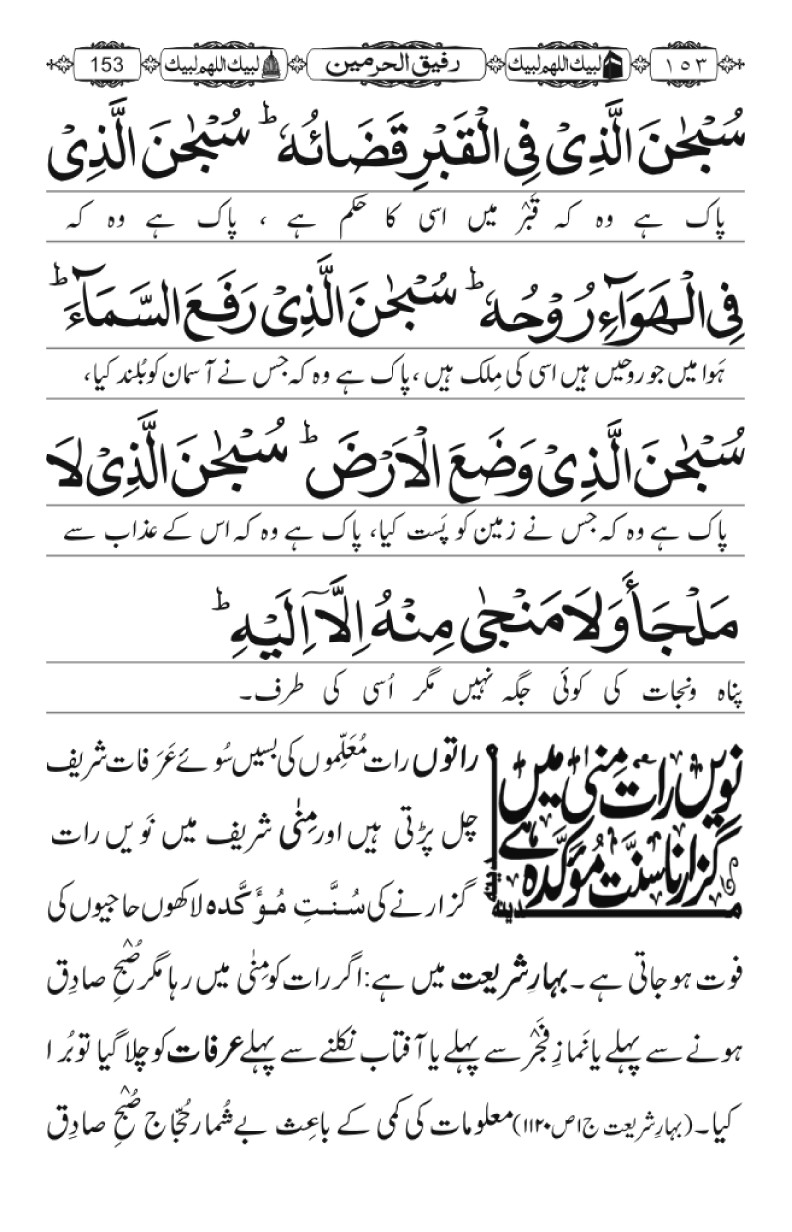 ۱۵۳ لبیك اللھم لبیك رفیق الحرمین لبیك اللھم لبیك 153
سُبْحٰنَ الَّذِیْ فِی الْقَبْرِ قَضَائُہٗ ط سُبْحٰنَ الَّذِیْ
پاک ہے وہ کہ قَبْر میں اسی کا حکم ہے ، پاک ہے وہ کہ
فِی الْھَوَآءِ رُوْحُہٗ ط سُبْحٰنَ الَّذِیْ رَفَعَ السَّمَآءَ ط
ہَوا میں جو روحیں ہیں اسی کی مِلک ہیں ، پاک ہے وہ کہ جس نے آسمان کو بُلند کیا،
سُبْحٰنَ الَّذِیْ وَضَعَ الْاَرْضَ ط سُبْحٰنَ الَّذِیْ لَا
پاک ہے وہ کہ جس نے زمین کو پَست کیا، پاک ہے وہ کہ اس کے عذاب سے
مَلْجَأَ وَلَا مَنْجٰی مِنْہُ اِلَّآ اِلَیْہِ ط
پناہ ونجات کی کوئی جگہ نہیں مگر اُسی کی طرف۔
نویں رات مِنٰی میں
گزارنا سنّت مُؤکَّدہ ہے
راتوں رات مُعَلِّموں کی بسیں سُوئے عَرَفات شریف
چل پڑتی ہیں اور مِنٰی شریف میں نَویں رات
گزارنے کی سُنَّتِ مُؤَکَّدہ لاکھوں حاجیوں کی
فوت ہو جاتی ہے ۔ بہارِ شریعت میں ہے: اگر رات کو مِنٰی میں رہا مگر صُبْحِ صادِق
ہونے سے پہلے یا نَمازِ فَجْر سے پہلے یا آفتاب نکلنے سے پہلے عرفات کو چلا گیا تو بُرا
کیا۔ (بہارِ شریعت ج۱ص۱۱۲۰) معلومات کی کمی کے باعِث بے شُمار حُجّاج صُبْحِ صادِق